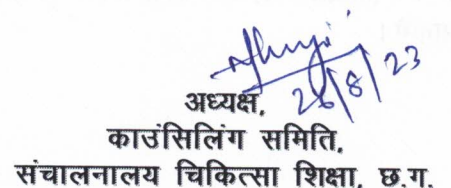 26/8/23
अध्यक्ष,
काउंसिलिंग समिति,
संचालनालय चिकित्सा शिक्षा, छ.ग.